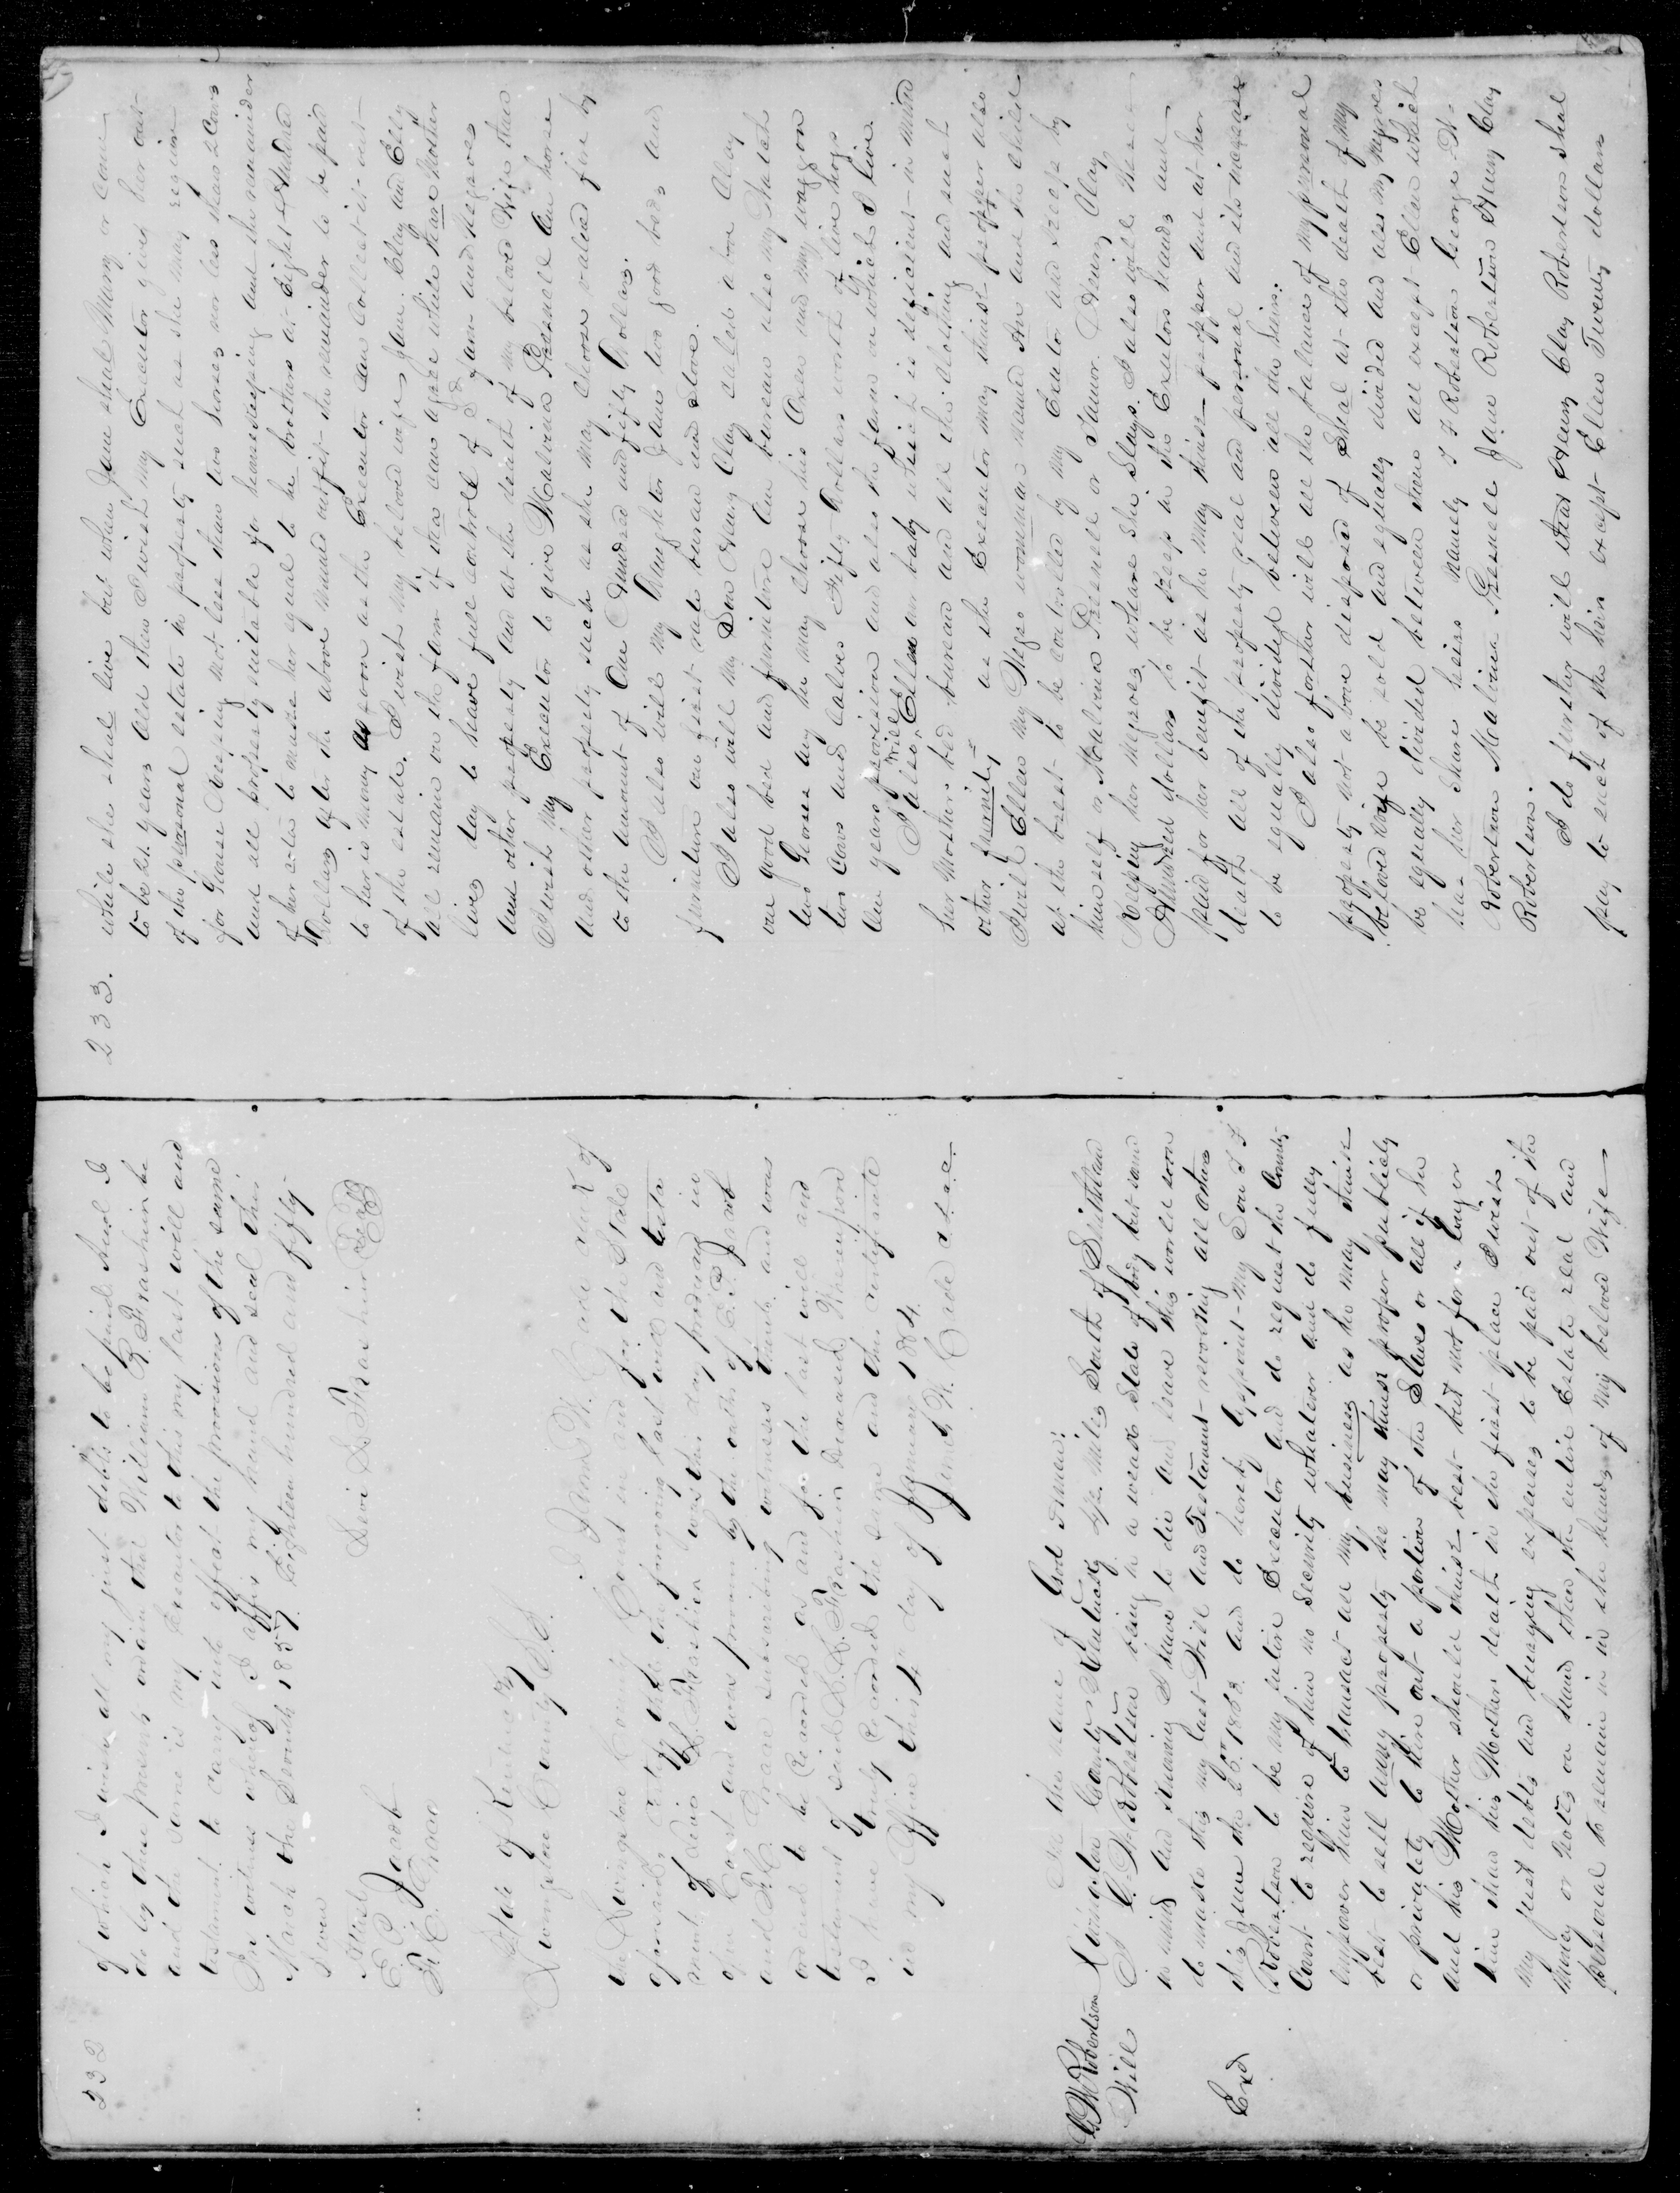 232
of which I wish all my just debts to be paid. And I
do by these presents ordain that William R. Brashier be
and the same is my Executor to this my last will and
testament to carry into effect the provisions of the same
In witness whereof I affix my hand and seal this
March the Seventh 1857. Eighteen hundred and fifty
Seven
Levi L Brashier Seal
Attest
E. P. Jarrot
R. C. Grace
State of Kentucky
Livingston County S.S.
I James W. Cade clerk of
the Livingston County Court in and for the State
aforesaid, certify that the foregoing last will and testa
ment of Levi L. Brashier was this day produced in
open Court and was proven by the oath of E. P. Jarrot
and R. C. Grace subscribing witnesses thereto and was
ordered to be Recorded as and for the last will and
testament of said L. L. Brashier Deceased Whereupon
I have truly Recorded the same and this certificate
in my Office this 4 day of January 1864.
James W. Cade c.l.c.c.
G W Robertson
Will
In the name of God Amen;
Livingston County Kentucky six miles South of Smithland
I G. W. Robertson being in a weak State of body but sound
in mind and knowing I have to die and leave this world soon
do make this my last Will and Testament revoking all others
this June the 25th 1863 and do hereby appoint my Son I F
Robertson to be my entire Executor and do request the County
Court to require of him no Security whatever and do fully
Exd
empower him to transact all my business as he may think
best to sell any property he may think proper publicly
or privately to hire out a portion of the Slaves or all if he
and his Mother should think best but not for a longer
time than his Mothers death in the first place I wish
my just debts and burying expenses to be paid out of the
money or notes on hand then the entire Estate real and
personal to remain in the hands of my beloved Wife
233.
while she shal live but when Jane shal Marry or come
to be 21 years old then I wish my Executor give her out
of the personal estate in property such as she may require
for House Keeping not less than two horses nor less than 2 Cows
and all property suitable for housekeeping and the remainder
of her estate to make her equal to he brothers at Eight Hundred
Dollars after the above named outfit the remainder to be paid
to her in money as soon as the Executor can Collect it out
of the estate. I wish my beloved wife Jane Clay and Elly
all remain on the farm if they can agree while thare Mother
lives Clay to have full controll of the farm and Negroes
and other property and at the death of my beloved Wife then
I wish my Executor to give Malvina Presnell One horse
and other property such as she may choose valued fire by
to the amount of One Hundred and fifty Dollars.
I also will my Daughter Jane two good beds and
furniture one first rate bureau and stove.
I also will my Son Henry Clay called a bove Clay
one good bed and furniture one bureau also my Watch
two Horses any he may choose his Oxen and my waggon
two Cows and Calves Fifty Dollars worth of live hogs
one years provision and also the farm on which I live.
I also will Ellen our baby which is deficient in mind
her Mothers bed bureau and all the clothing and such
other furniture as the Executor may think propper also
I will Ellen my Negro womman named Ann and the child
at the breast to be controlled by my Executor and keep by
him self or Malvina Presnell or Tanner Henry Clay
Keeping her negroes whare she Stays. I also will Her
Hundred dollars to be keep in the Executors hands and
paid for her benefit as he may think propper and at her
death all of the property real and personal and its increase
to be equally divided between all the heirs.
I also forther will all the balance of my personal
property not a bove disposed of Shal at the death of my
beloved Wife be sold and equally divided and also my negroes
be equally divided between them all except Ellen which
has her Share heirs namely I F Robertson George W.
Robertson Malvina Presnell Jane Robertson Henry Clay
Robertson.
I do further will that Henry Clay Robertson shal
pay to each of the heirs except Ellen Twenty dollars